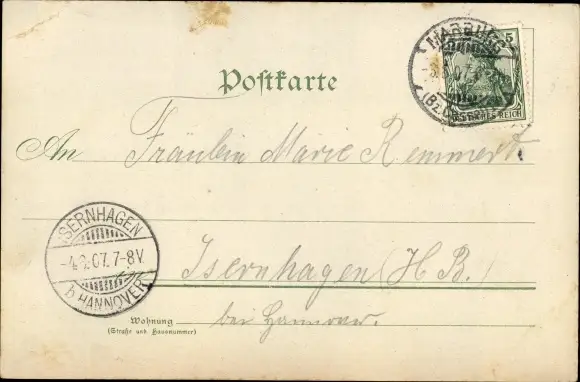 Postkarte
HARBURG
5
07
(Bz.
REICH
An Fräulein Marie Remmert
ISERNHAGEN
-4.2.07.7-8V.
b. HANNOVER
in Isernhagen (H B.)
bei Hannover.
Wohnung
(Straße und Hausnummer)